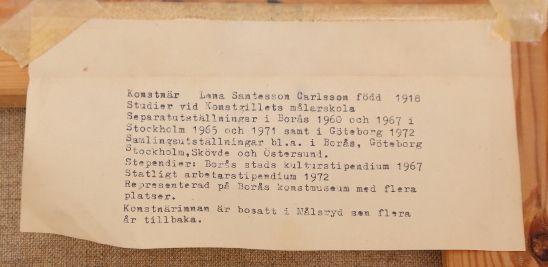 Konstnär Lena Santesson Carlsson född 1918
Studier vid Konstgillets målarskola
Separatutställningar i Borås 1960 och 1967 i
Stockholm 1965 och 1971 samt i Göteborg 1972
Samlingsutställningar bl.a. i Borås, Göteborg
Stockholm,Skövde och Östersund.
Stipendier: Borås stads kulturstipendium 1967
Statligt arbetarstipendium 1972
Representerad på Borås konstmuseum med flera
platser.
Konstnärinnan är bosatt i Målsryd sen flera
år tillbaka.